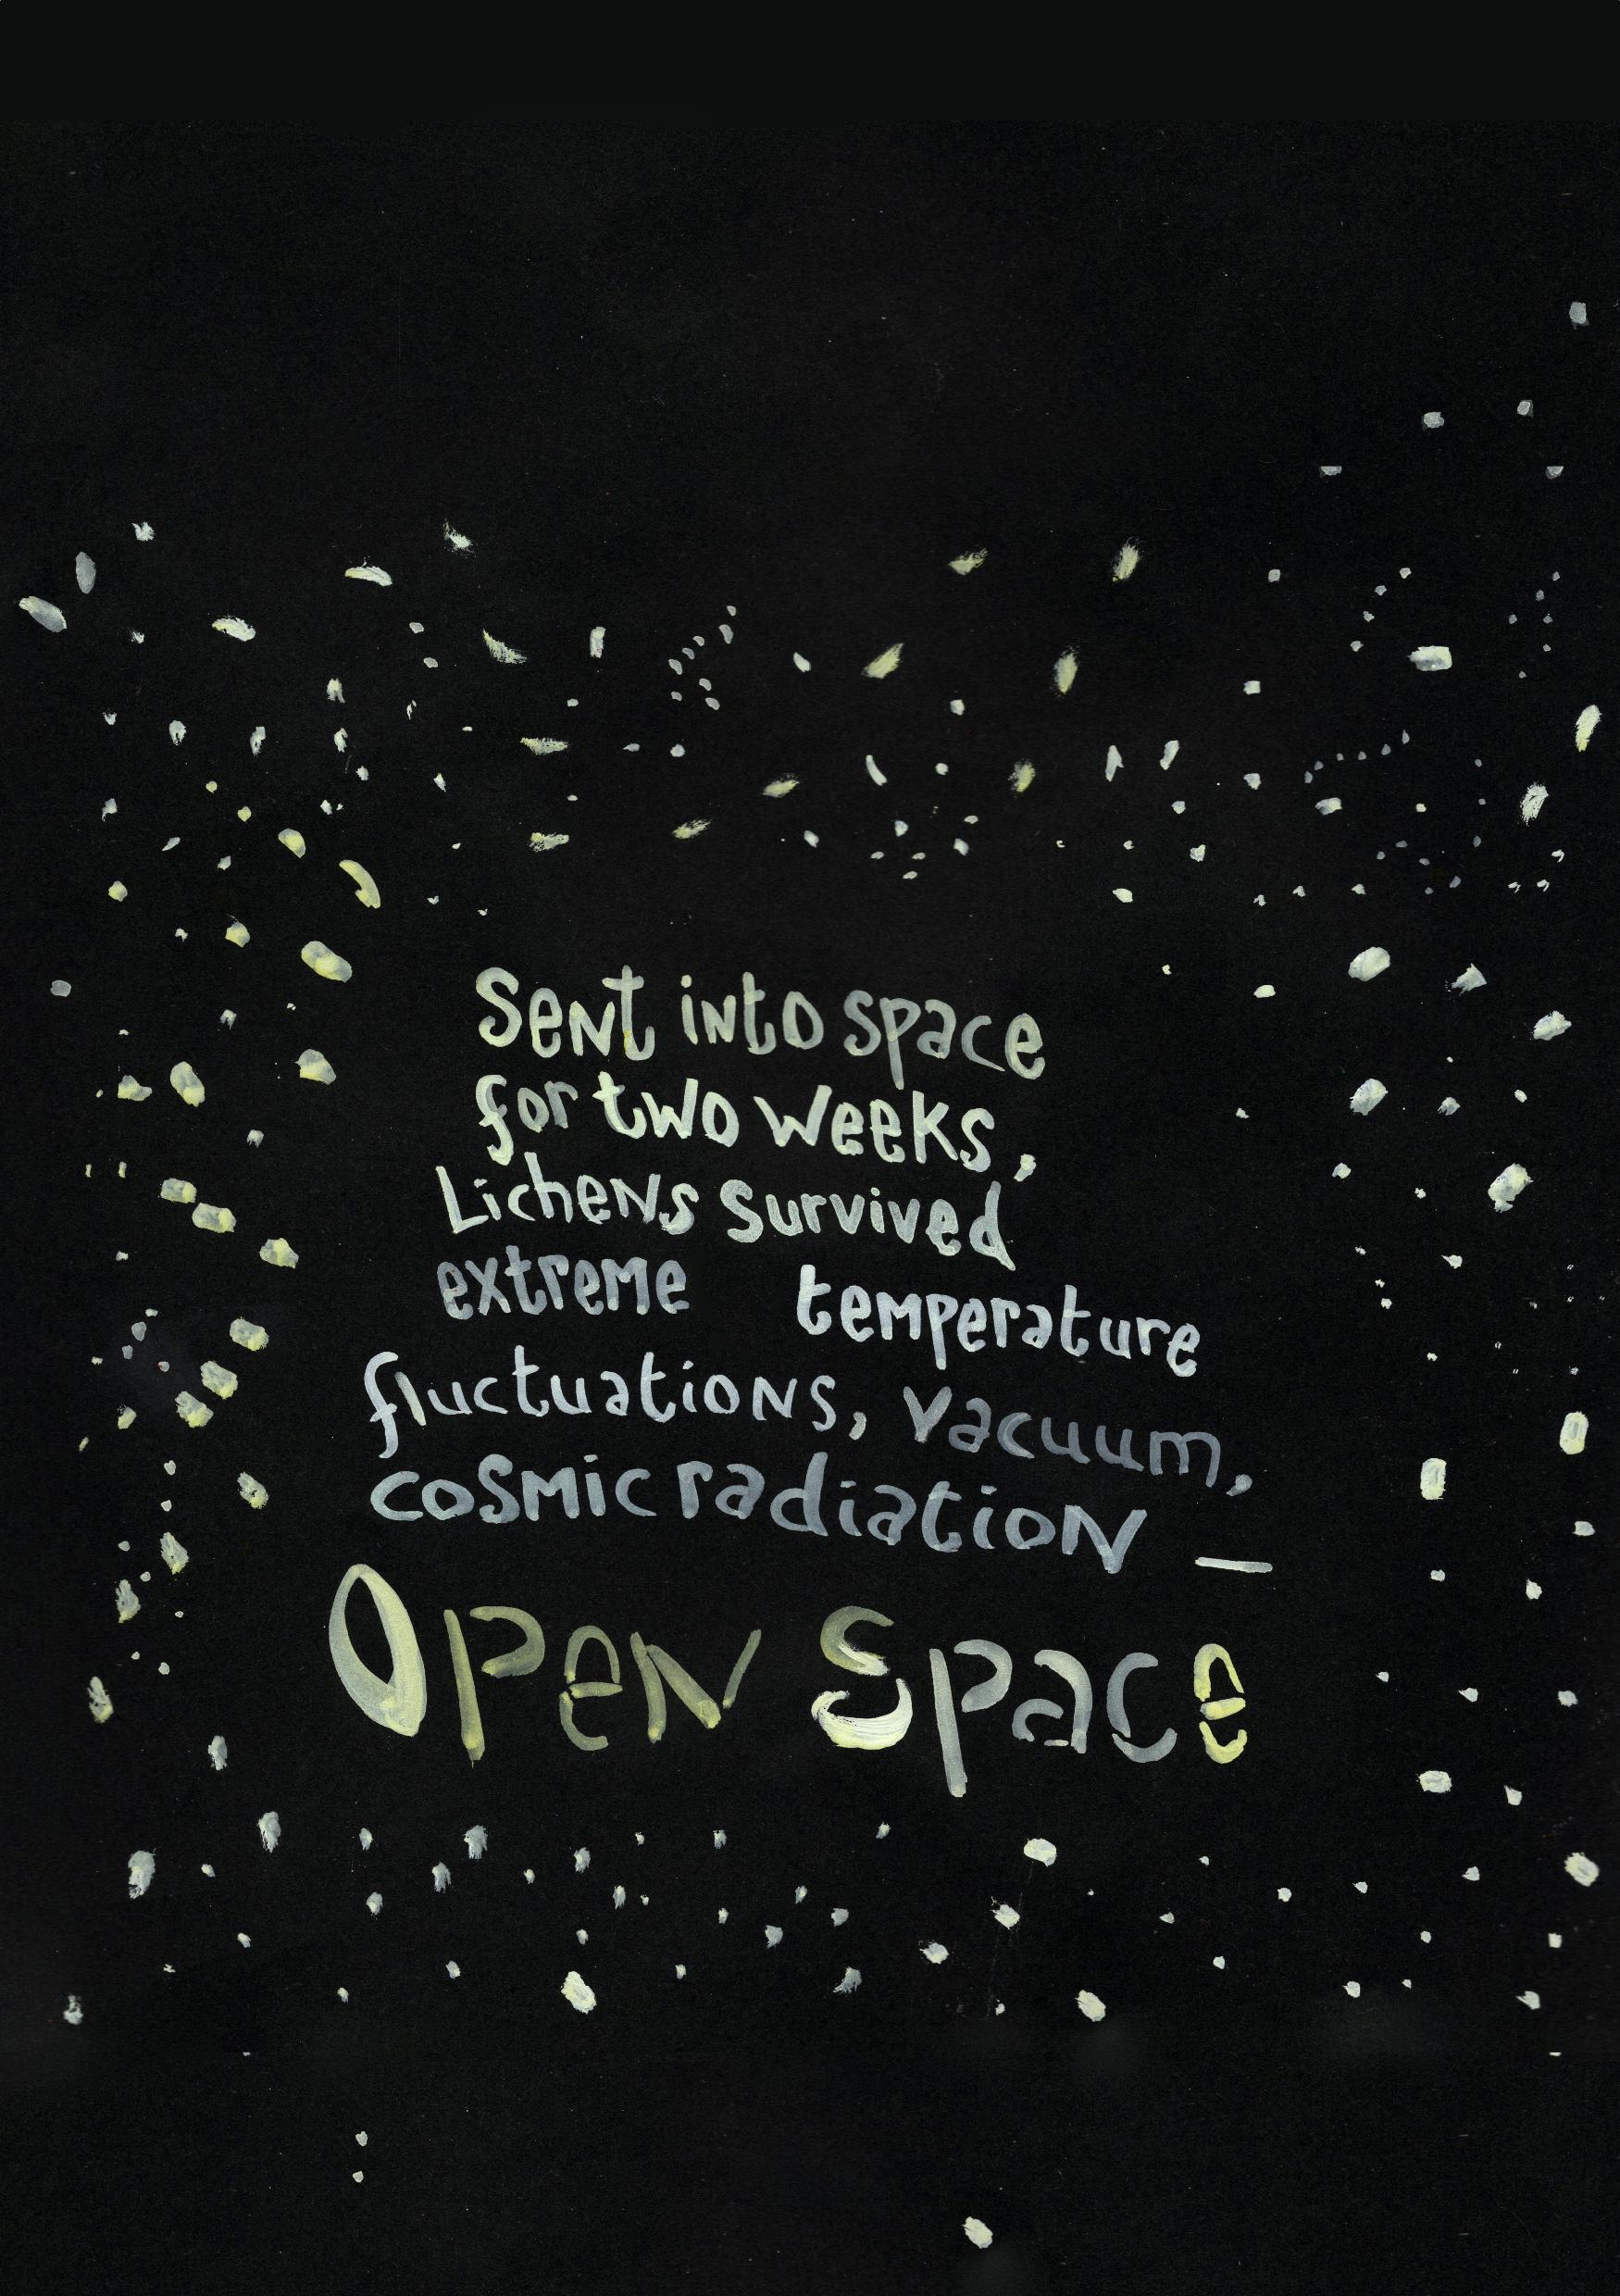 Sent into space
for two weeks,
Lichens survived
extreme temperature
fluctuations, vacuum,
cosmic radiation —
Open Space